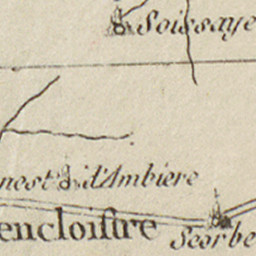 Soissaye
nest d'Ambiere
encloiſtre Scorbe